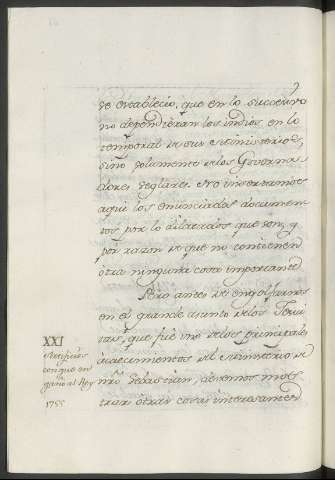 se estableció, que en lo succesivo
no dependieran los indios en lo
temporal de sus Ministerios,
sino solamente de los Governa-
dores Seglares. No insertamos
aqui los enunciados documen-
tos por lo dilatados que son, y
por razon de que no contienen
otra ninguna cosa importante
Pero antes de engolfarnos
en el grande asunto de los Jesui-
tas, que fue uno de los principales
acaecimientos del Ministerio de
nro Sebastian, devemos mos-
trar otras cosas interesantes
XXI
Artificios
con que en-
gañó al Rey
1755